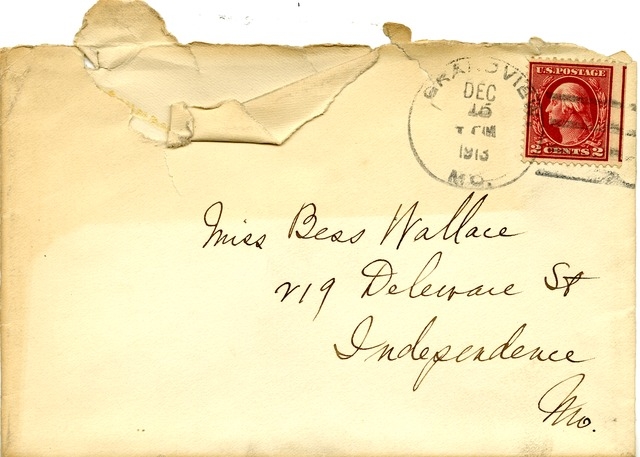 GRANDVIEW
DEC
15
1913
MO.
U.S. POSTAGE
2 CENTS 2
Miss Bess Wallace
219 Deleware St
Independence
Mo.